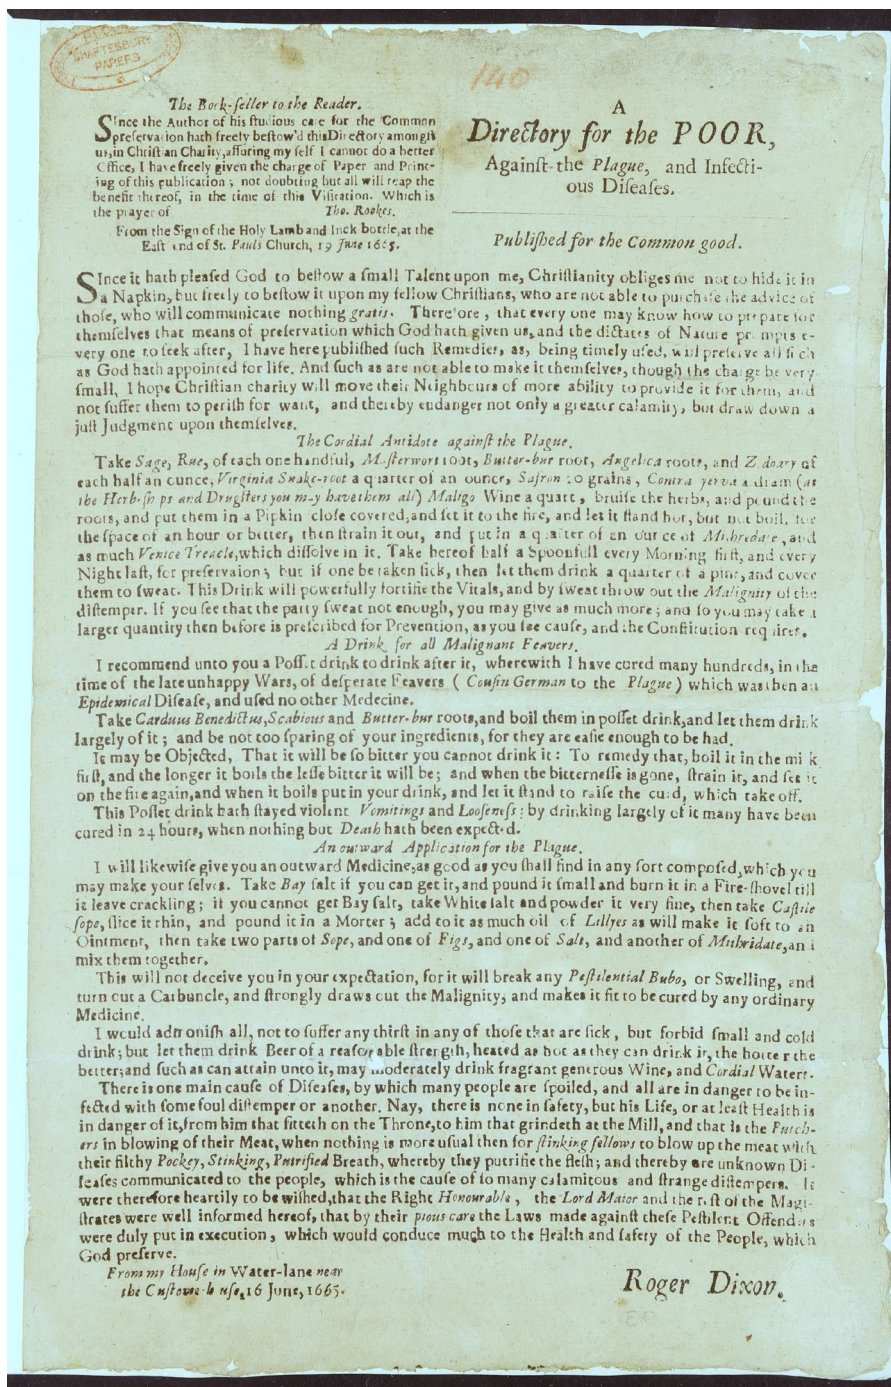 SHAFTESBURY
PAPERS
140
The Book-seller to the Reader.
SInce the Author of his studious care for the Common
preservation hath freely bestow'd this Directory amongst
us, in Christian Charity, assuring my self I cannot do a better
Office, I have freely given the charge of Paper and Print-
ing of this publication; not doubting but all will reap the
benefit thereof, in the time of this Visitation. Which is
the prayer of Tho. Rookes.
From the Sign of the Holy Lamb and Inck bottle, at the
East end of St. Pauls Church, 19 June 1665.
A
Directory for the POOR,
Against the Plague, and Infecti-
ous Diseases.
Published for the Common good.
SInce it hath pleased God to bestow a small Talent upon me, Christianity obliges me not to hide it in
a Napkin, but freely to bestow it upon my fellow Christians, who are not able to purchase the advice of
those, who will communicate nothing gratis. Therefore, that every one may know how to prepare for
themselves that means of preservation which God hath given us, and the dictates of Nature prompts e-
very one to seek after, I have here published such Remedies, as, being timely used, will preserve all such
as God hath appointed for life. And such as are not able to make it themselves, though the charge be very
small, I hope Christian charity will move their Neighbours of more ability to provide it for them, and
not suffer them to perish for want, and thereby endanger not only a greater calamity, but draw down a
just Judgment upon themselves.
The Cordial Antidote against the Plague.
Take Sage, Rue, of each one handful, Masterwort root, Butter-bur root, Angelica roots, and Zedoary of
each half an ounce, Virginia Snake-root a quarter of an ounce, Safron 20 grains, Contra yerva a dram (at
the Herb-shops and Drugsters you may have them all) Maligo Wine a quart, bruise the herbs, and pound the
roots, and put them in a Pipkin close covered, and set it to the fire, and let it stand hot, but not boil, for
the space of an hour or better, then strain it out, and put in a quarter of an ounce of Mithredate, and
as much Venice Treacle, which dissolve in it. Take hereof half a Spoonfull every Morning first, and every
Night last, for preservaion; but if one be taken sick, then let them drink a quarter of a pint, and cover
them to sweat. This Drink will powerfully fortifie the Vitals, and by sweat throw out the Malignity of the
distemper. If you see that the party sweat not enough, you may give as much more; and so you may take a
larger quantity then before is prescribed for Prevention, as you see cause, and the Constitution requires.
A Drink for all Malignant Feavers.
I recommend unto you a Posset drink to drink after it, wherewith I have cured many hundreds, in the
time of the late unhappy Wars, of desperate Feavers (Cousin German to the Plague) which was then an
Epidemical Disease, and used no other Medecine.
Take Carduus Benedictus, Scabious and Butter-bur roots, and boil them in posset drink, and let them drink
largely of it; and be not too sparing of your ingredients, for they are easie enough to be had.
It may be Objected, That it will be so bitter you cannot drink it: To remedy that, boil it in the milk
first, and the longer it boils the lesse bitter it will be; and when the bitternesse is gone, strain it, and set it
on the fire again, and when it boils put in your drink, and let it stand to raise the curd, which take off.
This Posset drink hath stayed violent Vomitings and Looseness: by drinking largely of it many have been
cured in 24 hours, when nothing but Death hath been expected.
An outward Application for the Plague.
I will likewise give you an outward Medicine, as good as you shall find in any sort composed, which you
may make your selves. Take Bay salt if you can get it, and pound it small and burn it in a Fire-shovel till
it leave crackling; if you cannot get Bay salt, take White salt and powder it very fine, then take Castile
sope, slice it thin, and pound it in a Morter; add to it as much oil of Lillyes as will make it soft to an
Ointment, then take two parts of Sope, and one of Figs, and one of Salt, and another of Mithridate, and
mix them together.
This will not deceive you in your expectation, for it will break any Pestilential Bubo, or Swelling, and
turn out a Carbuncle, and strongly draws out the Malignity, and makes it fit to be cured by any ordinary
Medicine.
I would admonish all, not to suffer any thirst in any of those that are sick, but forbid small and cold
drink; but let them drink Beer of a reasonable strength, heated as hot as they can drink it, the hotter the
better; and such as can attain unto it, may moderately drink fragrant generous Wine, and Cordial Waters.
There is one main cause of Diseases, by which many people are spoiled, and all are in danger to be in-
fected with some foul distemper or another. Nay, there is none in safety, but his Life, or at least Health is
in danger of it, from him that sitteth on the Throne, to him that grindeth at the Mill, and that is the Butch-
ers in blowing of their Meat, when nothing is more usual then for stinking fellows to blow up the meat with
their filthy Pockey, Stinking, Putrified Breath, whereby they putrifie the flesh; and thereby are unknown Di-
seases communicated to the people, which is the cause of so many calamitous and strange distempers. It
were therefore heartily to be wished, that the Right Honourable, the Lord Maior and the rest of the Magi-
strates were well informed hereof, that by their pious care the Laws made against these Pestilent Offenders
were duly put in execution, which would conduce much to the Health and safety of the People, which
God preserve.
From my House in Water-lane near
the Custome-house, 16 June, 1665.
Roger Dixon.